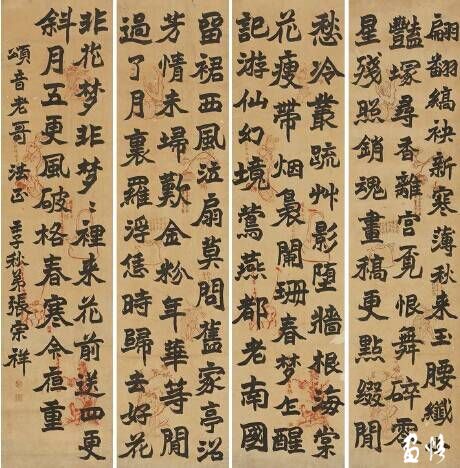 翩翻縞袂新寒薄秋来玉腰纖小
豔塚尋香離宮覓恨舞碎零
星殘照銷魂畫稿更點綴閒
愁冷叢疏艸影墮牆根海棠
花瘦帶烟裊闌珊春夢乍醒
記游仙幻境鶯燕都老南國
留裙西風泣扇莫問舊家亭沼
芳情未埽歎金粉年華等閒
過了月裏羅浮恁時歸去好花
非花梦非梦〻裡来花前四更
斜月五更風破格春寒今重
頌音老哥 法正 壬子秋弟張宗祥